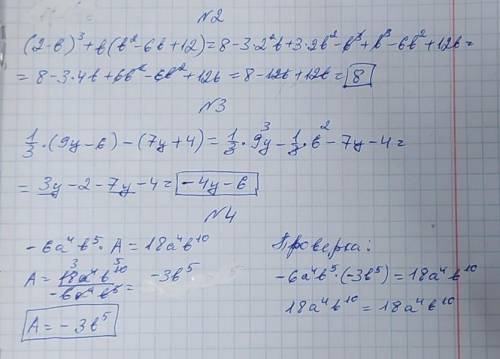 №2
(2-b)³+b(b²-6b+12)=8-3·2²b+3·2b²-b³+b³-6b²+12b=
=8-3·4b+6b²-6b²+12b=8-12b+12b=8
№3
1/3·(9y-6)-(7y+4)=1/3·9y³-1/3·6²-7y-4=
=3y-2-7y-4=-4y-6
№4
-6a⁴b⁵·A=18a⁴b¹⁰
A=18³a⁴b¹⁰⁵/-6a⁴b⁵=-3b⁵
A=-3b⁵
Проверка:
-6a⁴b⁵·(-3b⁵)=18a⁴b¹⁰
18a⁴b¹⁰=18a⁴b¹⁰